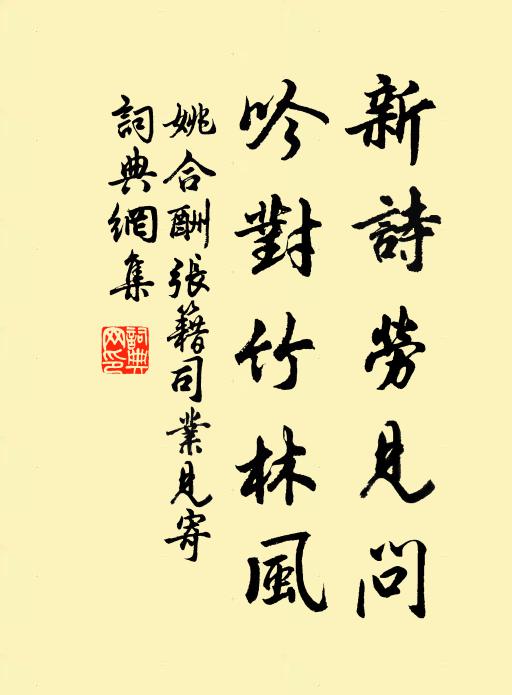 新詩勞見問
吟對竹林風
姚合酬張籍司業見寄
詞典網集
詞典網印